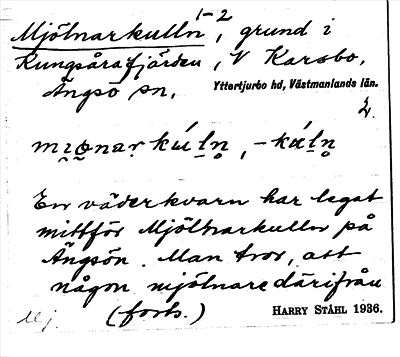 1-2
Mjölnarkulln, grund i
Kungsårafjärden, V Karsbo,
Ängsö sn,
Yttertjurbo hd, Västmanlands län.
2.
En väderkvarn har legat
mittför Mjölnarkulln på
Ängsön. Man tror, att
någon mjölnare därifrån
(forts.)
HARRY STÅHL 1936.
Mj.